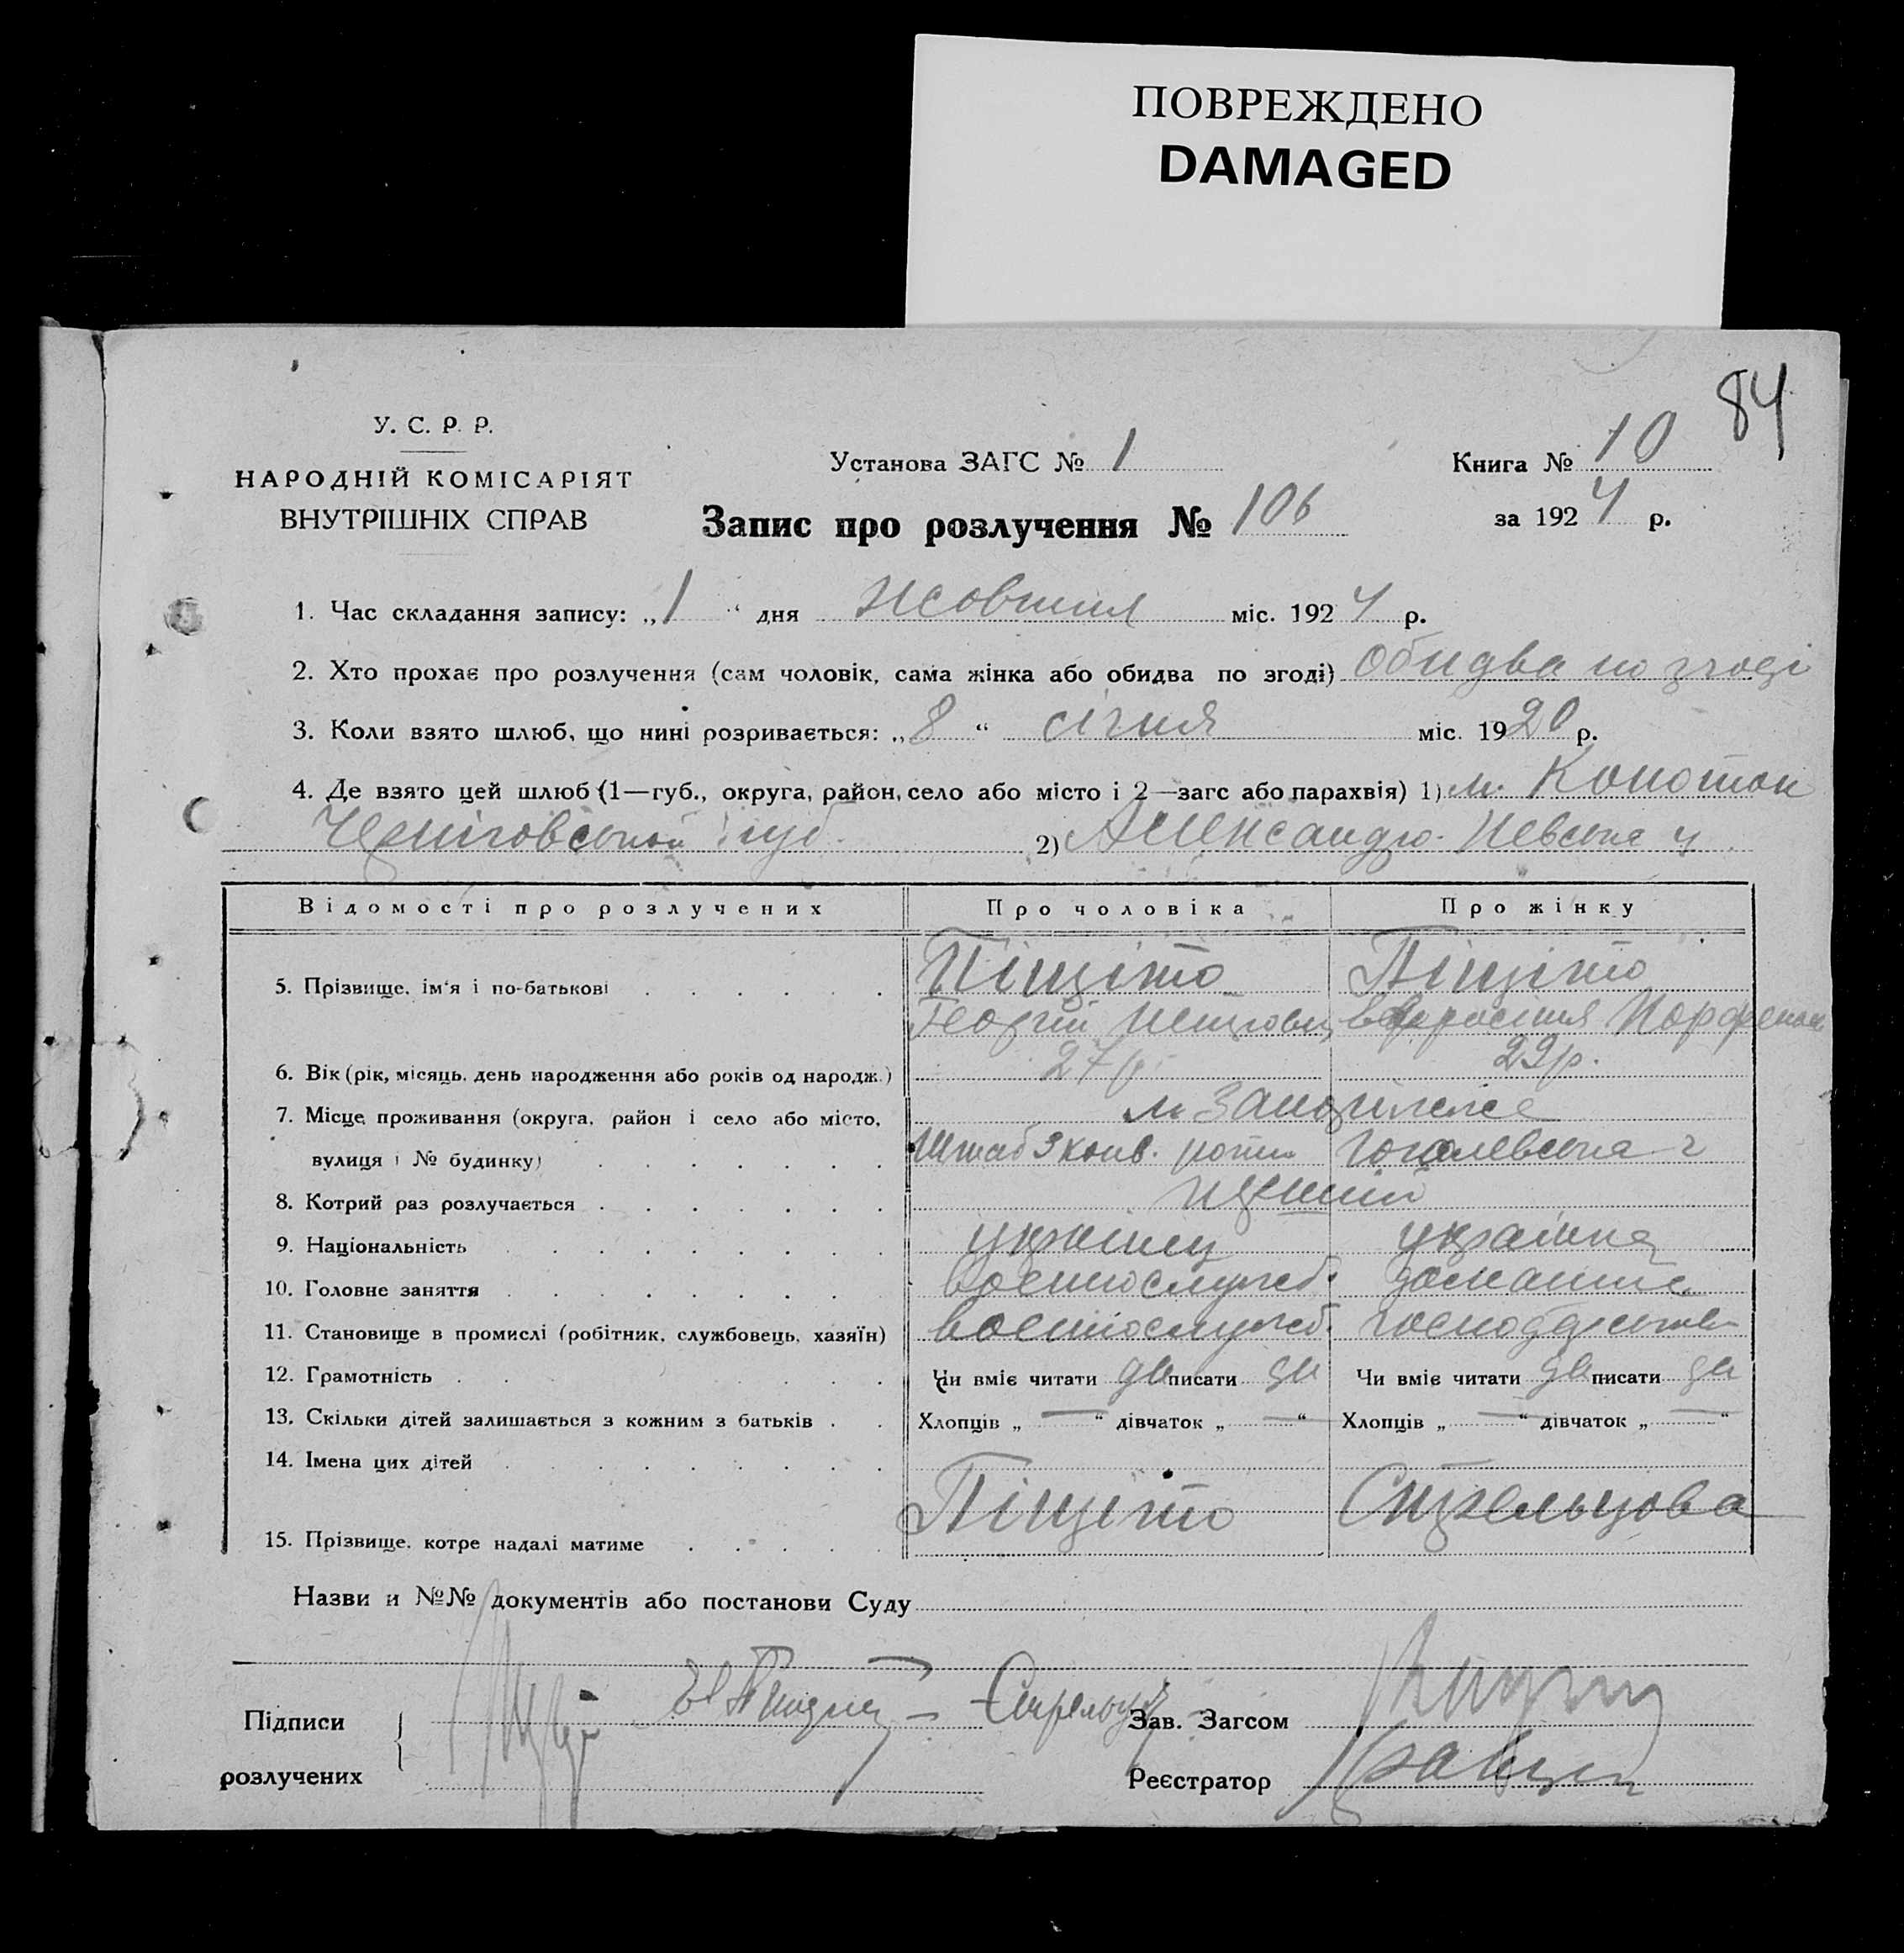 ПОВРЕЖДЕНО
DAMAGED
84
У. С. Р. Р.
НАРОДНІЙ КОМІСАРІЯТ
ВНУТРІШНІХ СПРАВ
Установа ЗАГС № 1
Книга № 10
Запис про розлучення № 106
за 1924 р.
1. Час складання запису: „1“ дня Жовтня міс. 1924 р.
2. Хто прохає про розлучення (сам чоловік, сама жінка або обидва по згоді) Обидва по згоді
3. Коли взято шлюб, що нині розривається: „8“ січня міс. 1920 р.
4. Де взято цей шлюб (1—губ., округа, район, село або місто і 2—загс або парахвія) 1) м. Конотоп
Черніговської губ. 2) Александро-Невська ц.
Відомості про розлучених Про чоловіка Про жінку
5. Прізвище, ім'я і по-батькові Піщіто Піщіто
Георгій
6. Вік (рік, місяць, день народження або років од народж.) 27 р. 22 р.
7. Місце проживання (округа, район і село або місто, м. Запоріжжє
вулиця і № будинку) Штаб 3 конв. роти Гоголевська 2
8. Котрий раз розлучається перший
9. Національність українец украінка
10. Головне заняття военнослужб. домашнє
11. Становище в промислі (робітник, службовець, хазяїн) военнослужб. господарство
12. Грамотність Чи вміє читати да писати да Чи вміє читати да писати да
13. Скільки дітей залишається з кожним з батьків Хлопців „ — “ дівчаток „ — “ Хлопців „ — “ дівчаток „ — “
14. Імена цих дітей
Піщіто Стрельцова
15. Прізвище, котре надалі матиме
Назви и №№ документів або постанови Суду
Підписи
розлучених
Зав. Загсом
Реєстратор